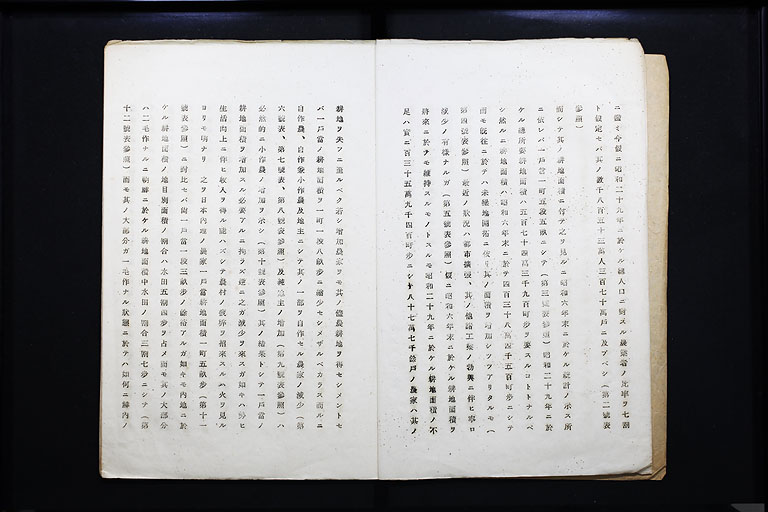 ニ鑑ミ今假ニ昭和二十九年ニ於ケル總人口ニ對スル農業者ノ比率ヲ七割
ト假定セバ其ノ數千八百五十三萬人三百七十萬戸ニ及ブベシ(第二號表
參照)
而シテ其ノ耕地面積ニ付テ之ヲ見ルニ昭和六年末ニ於ケル統計ノ示ス所
ニ依レバ一戸當一町五段五畝ニシテ(第三號表參照)昭和二十九年ニ於
ケル總所要耕地面積ハ五百七十四萬三千九百町歩ヲ要スルコトトナルベ
シ然ルニ耕地面積ハ昭和六年末ニ於テ四百三十八萬四千五百町歩ニシテ
而モ既往ニ於テハ未墾地開拓ニ依リ其ノ面積ヲ増加シツツアリタルモ(
第四號表參照)最近ノ狀況ハ都市擴張、其ノ他諸工業ノ勃興ニ伴ヒ寧ロ
減少ノ有樣ナルガ(第五號表參照)假ニ昭和六年末ニ於ケル耕地面積ヲ
將來ニ於テモ維持スルモノトスルモ昭和二十九年ニ於ケル耕地面積ノ不
足ハ實ニ百三十五萬九千四百町歩ニシテ八十七萬七千餘戸ノ農家ハ其ノ
耕地ヲ失フニ至ルベク若シ増加農家ヲモ其ノ儘農耕地ヲ得セシメントセ
バ一戸當ノ耕地面積ヲ一町一段八畝歩ニ縮少セシメザルベカラス而ルニ
自作農、自作兼小作農及地主ニシテ其ノ一部ヲ自作セル農家ノ減少(第
六號表、第七號表、第八號表參照)及純地主ノ増加(第九號表參照)ハ
必然的ニ小作農ノ増加ヲ示シ(第十號表參照)其ノ結果トシテ一戸當ノ
耕地面積ヲ増加スル必要アルニ拘ラズ逆ニ之ガ減少ヲ來スガ如キハ勢ヒ
生活向上ニ伴ヒ收入ヲ得ル能ハズシテ農村ノ疲弊ヲ招來スルハ火ヲ見ル
ヨリモ明ナリ 之ヲ日本內地ノ農家一戸當耕地面積一町五畝歩(第十一
號表參照)ニ對比セバ尚一戸當一段三畝歩ノ餘裕アルガ如キモ內地ニ於
ケル耕地面積ノ地目別面積ノ割合ハ水田五割四歩ヲ占メ而モ其ノ大部分
ハ二毛作ナルニ朝鮮ニ於ケル耕地面積中水田ノ割合三割七歩ニシテ(第
十二號表參照)而モ其ノ大部分ガ一毛作ナル狀態ニ於テハ如何ニ鮮內ノ